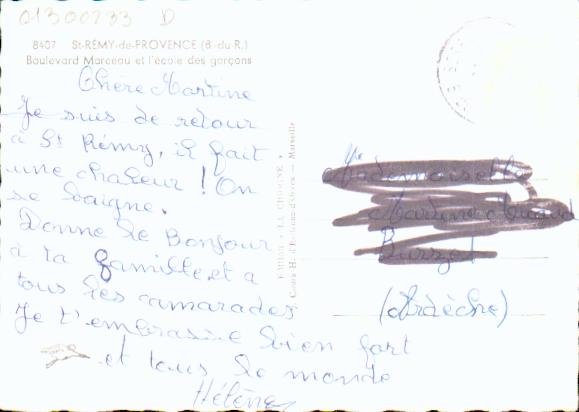 01300233 D
8407 St-RÉMY-de-PROVENCE (B.-du-R.)
Boulevard Marceau et l'école des garçons
Chère Martine
Je suis de retour
à St Rémy, il fait
une chaleur ! On
se baigne.
Donne le Bonjour
à ta famille et a
tous les camarades
Je t'embrasse bien fort
et tous le monde
Hélène
Mademoiselle
Martine
Burzet
(Ardèche)